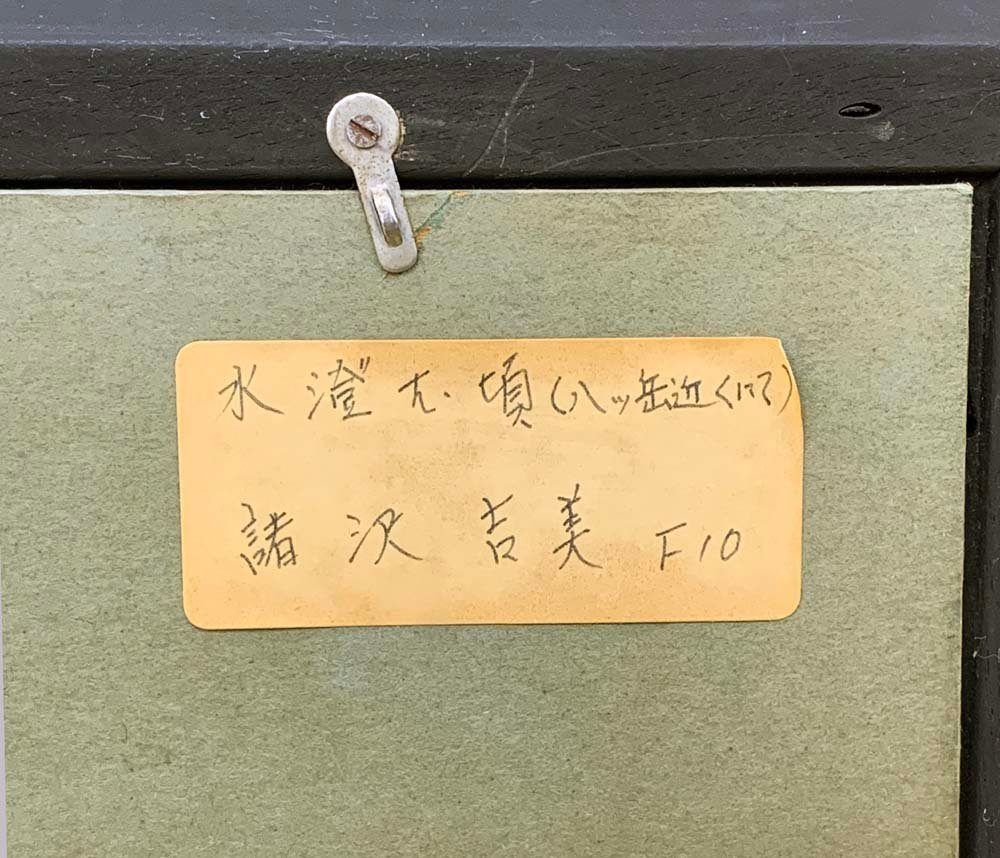 水澄む頃(八ッ岳近くにて)
諸沢吉美 F10